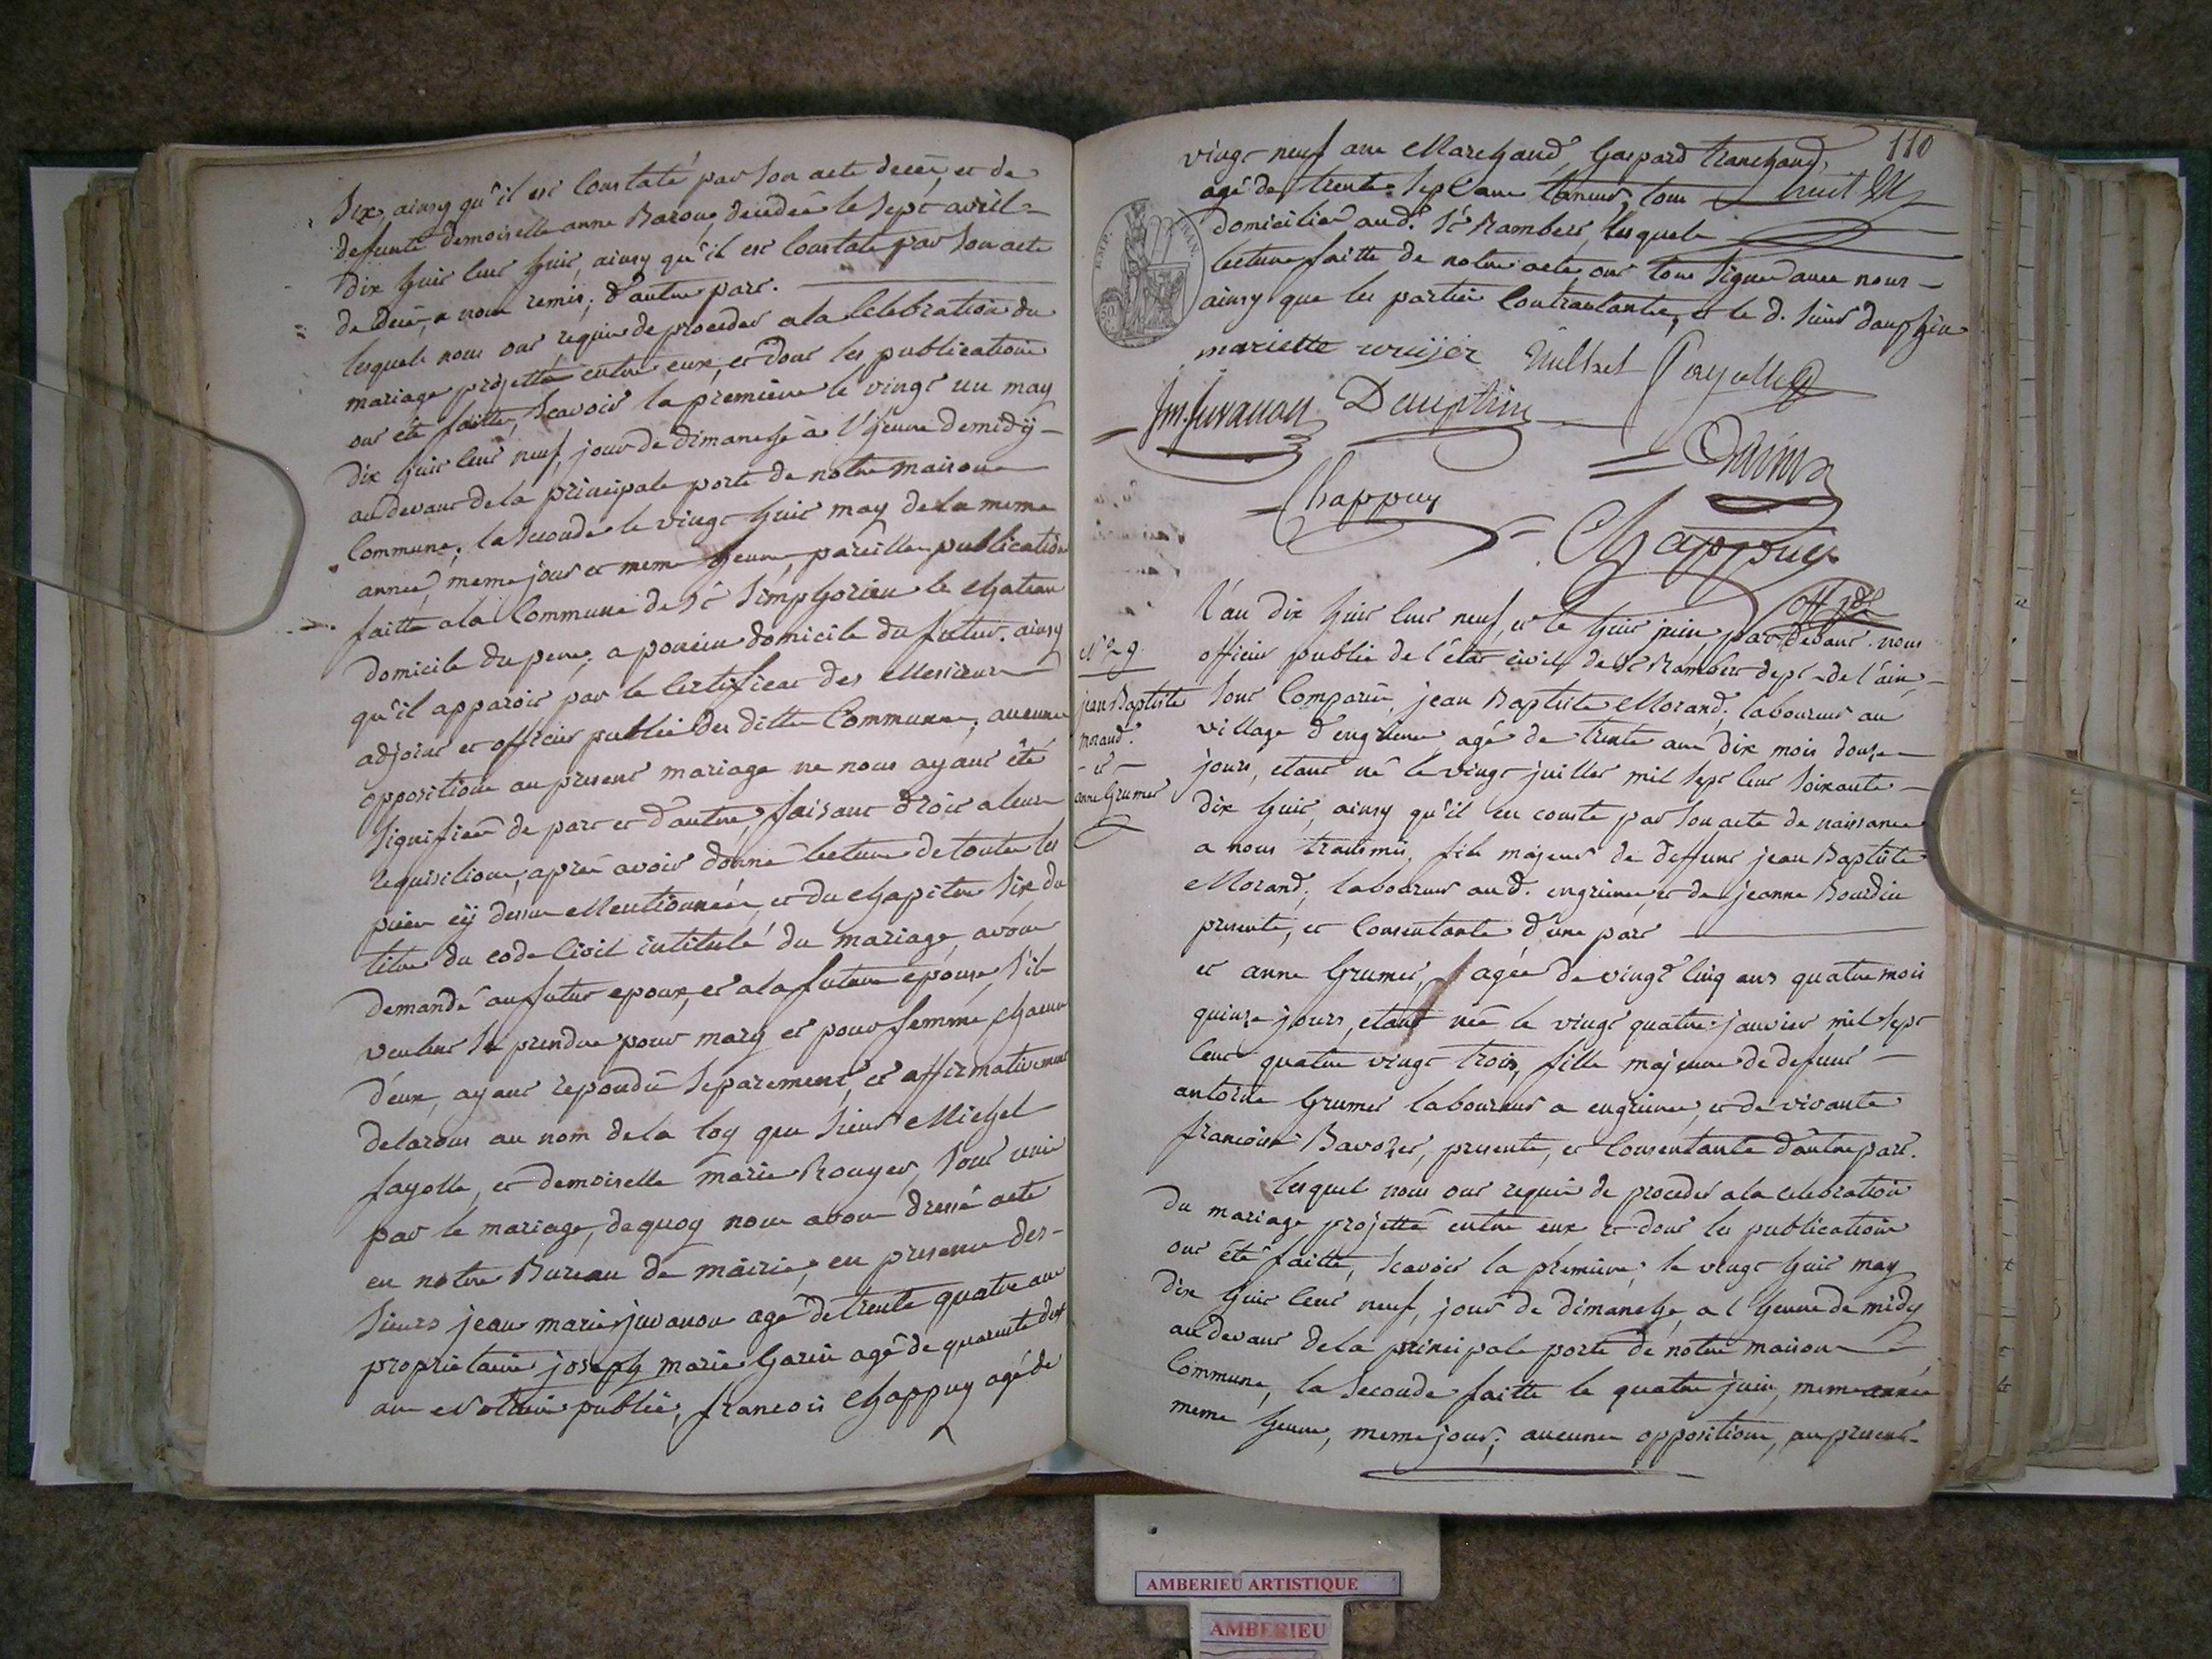 Six, ainsy qu'il est Constaté par Son acte décès, et de
defunte demoiselle anne Baron, décédée le Sept avril
dix huit Cent huit, ainsy qu'il est Constaté par Son acte
de décès, a nous remis; d'autre part.
lesquels nous ont requis de proceder a la Celebration du
mariage projetté entre eux, et dont les publications
ont été faittes, Scavoir la premiere le vingt un may
dix huit Cent neuf, jour de dimanche à l'heure de midÿ
au devant de la principale porte de notre maison
Commune; la Seconde le vingt huit may de la meme
année, meme jour et meme heure, pareilles publications
faitte a la Commune de St Simphorien le chateau
domicile du pere, a pouvin domicile du futur. ainsy
qu'il apparoit par le Certificat des Messieurs
adjoint et officier public des dittes Communes, aucune
opposition au present mariage ne nous ayant été
Signifiée de part et d'autre, faisant droit a leurs
requisitions, après avoir donné lecture de toutes les
pieces cÿ dessus Mentionnées, et du chapitre Six du
titre du code Civil intitulé du mariage, avons
demandé au futur epoux, et a la future épouse, S'ils
veulent Se prendre pour mary et pour femme, chacun
d'eux, ayant repondu Separement, et affirmativement
declarons au nom de la loy que Sieur Michel
fayolle, et demoiselle marie Rouyer, Sont unis
par le mariage, de quoy nous avons dressé acte
en notre Bureau de mairie, en presence des
Sieurs jean marie juvanon agé de trente quatre ans
proprietaire joseph marie Garin agé de quarante deux
ans Notaire public, francois Chappuy agé de
110
vingt neuf ans Marchand, Gaspard tranchand,
agé de trente Sept ans tanneur, tous
domicilies aud. St Rambert, lesquels
lecture faitte de notre acte, ont tous Signé avec nous
ainsy que les parties Contractantes, et le d. Sieur dauphin
mariette rouijer fayolle
Jm. Juvanon Dauphin
Chappuy
Chappuy
off. p.
L'an dix huit Cent neuf, et le huit juin, par devant nous
officier public de l'état civil de St Rambert dept de l'ain,
N° 9.
jean Baptiste
morand.
- et -
anne Grumet
Sont Comparus, jean Baptiste Morand, laboureur au
village d'engrieve, agé de trente ans dix mois douze
jours, etant né le vingt juillet mil Sept Cent Soixante
dix huit, ainsy qu'il en conste par Son acte de naissance
a nous transmis, fils majeur de deffunt jean Baptiste
Morand, laboureur aud. engrieve, et de jeanne Bourdin
presente, et Consentante d'une part
et anne Grumet, agée de vingt Cinq ans quatre mois
quinze jours, etant née le vingt quatre janvier mil Sept
Cent quatre vingt trois, fille majeure de defunt
antoine Grumet laboureur a engrieve, et de vivante
francoise Bavozet, presente, et Consentante d'autre part.
lesquel nous ont requis de proceder a la celebration
du mariage projetté entre eux et dont les publications
ont été faitte, Scavoir la premiere; le vingt huit may
dix huit Cent neuf, jour de dimanche, a l heure de midy
au devant de la principale porte de notre maison
Commune, la Seconde faitte le quatre juin, meme année
meme heure, meme jour; aucune opposition, au present
AMBERIEU ARTISTIQUE
AMBERIEU